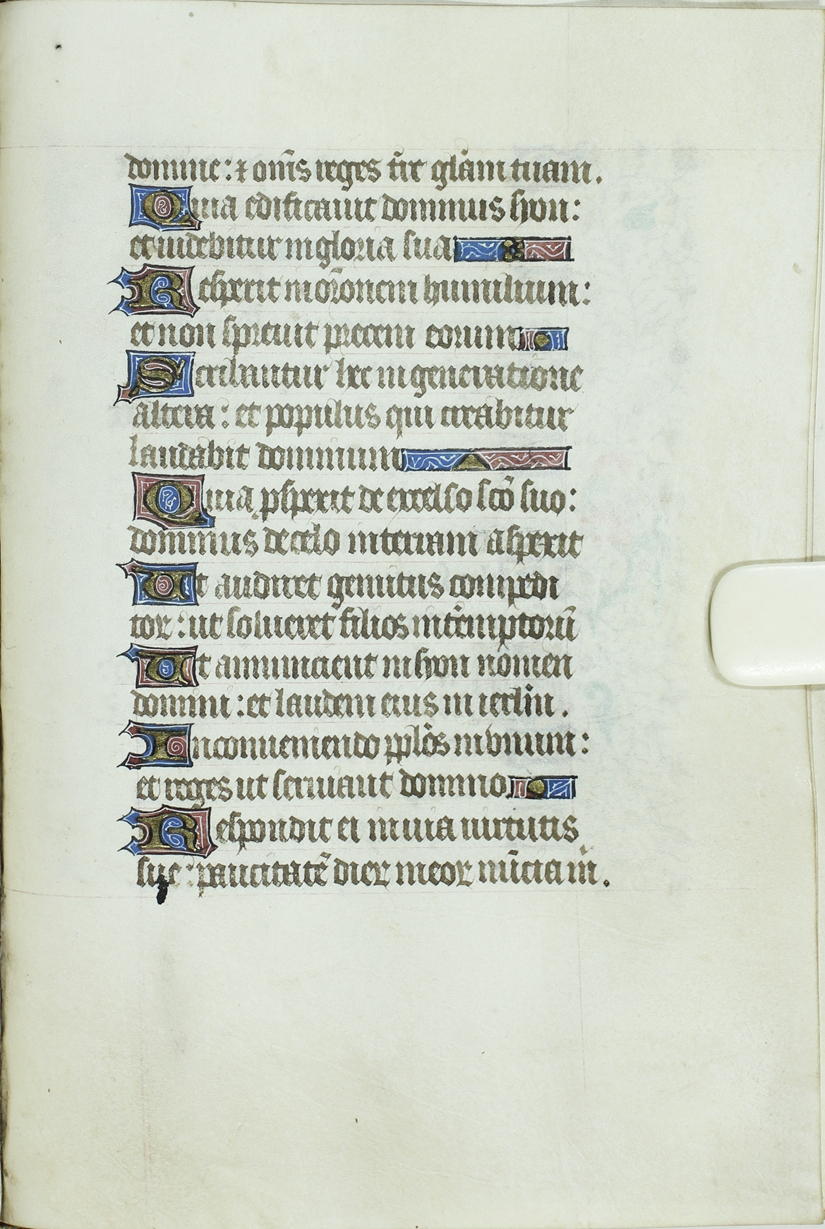 domine: ⁊ om̄s reges t̄re gl̄am tuam.
Quia edificauit dominus syon:
et uidebitur in gloria sua
Respexit in or̄onem humilium:
et non spreuit precem eorum
Scribantur hec in generatione
altera: et populus qui creabitur
laudabit dominum
Quia ꝓspexit de excelso sc̄o suo:
dominus de celo in terram aspexit
Ut audiret gemitus compedi
toꝝ: ut solueret filios int̄emptorū
Ut annuncient in syon nomen
domini: et laudem eius in ierl̄m.
In conueniendo ppl̄os in vnum:
et reges ut seruiant domino
Respondit ei in uia uirtutis
sue: paucitatē dieꝝ meoꝝ nūcia m̄.